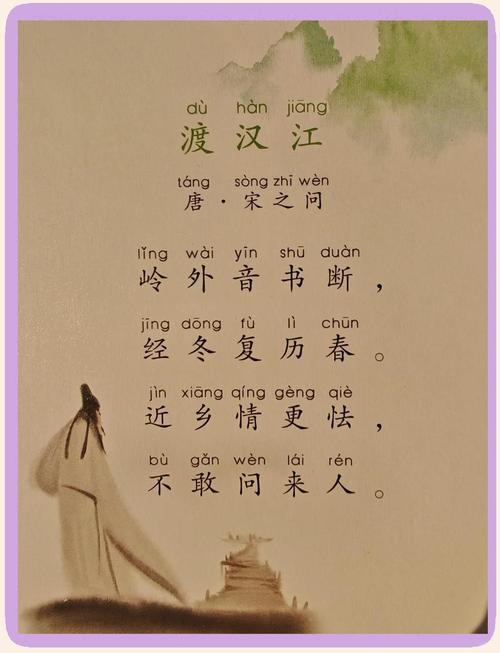 dù hàn jiāng
渡汉江
táng sòng zhī wèn
唐·宋之问
lǐng wài yīn shū duàn
岭外音书断，
jīng dōng fù lì chūn
经冬复历春。
jìn xiāng qíng gèng qiè
近乡情更怯，
bù gǎn wèn lái rén
不敢问来人。